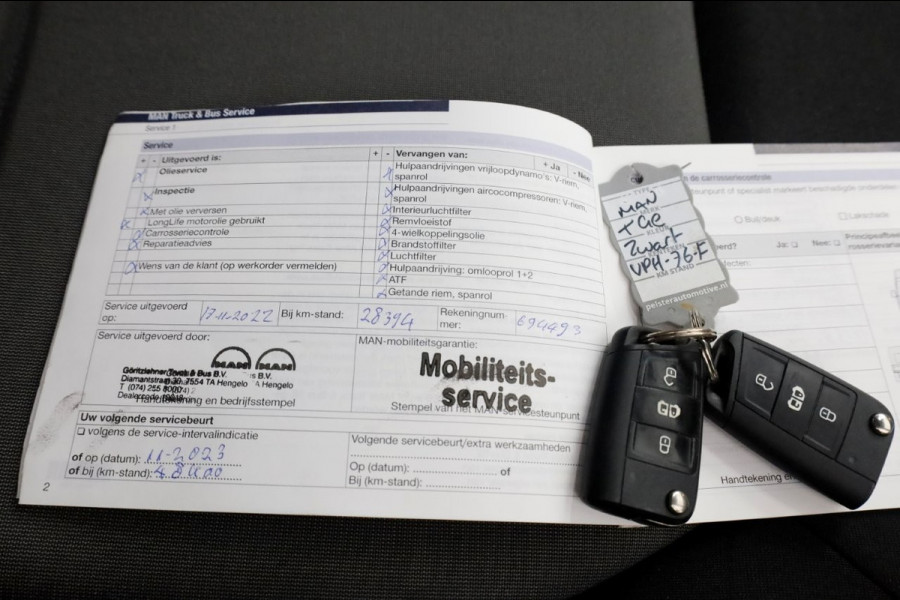 MAN Truck & Bus Service
Service 1
Service
+ - Uitgevoerd is:
Olieservice
Inspectie
Met olie verversen
LongLife motorolie gebruikt
Carrosseriecontrole
Reparatieadvies
Wens van de klant (op werkorder vermelden)
+ - Vervangen van: + Ja - Nee
Hulpaandrijvingen vrijloopdynamo's: V-riem,
spanrol
Hulpaandrijvingen aircocompressoren: V-riem,
spanrol
Interieurluchtfilter
Remvloeistof
4-wielkoppelingsolie
Brandstoffilter
Luchtfilter
Hulpaandrijving: omlooprol 1+2
ATF
Getande riem, spanrol
Service uitgevoerd
op: 17-11-2022 Bij km-stand: 28394 Rekeningnum
mer: 694493
Service uitgevoerd door:
MAN MAN
Diamantstraat 30, 7554 TA Hengelo
T (074) 255
Handtekening en bedrijfsstempel
MAN-mobiliteitsgarantie:
Mobiliteits-
service
Stempel van het MAN-servicesteunpunt
Uw volgende servicebeurt
volgens de service-intervalindicatie
of op (datum): 11-2023
of bij (km-stand):
Volgende servicebeurt/extra werkzaamheden
Op (datum): of
Bij (km-stand):
2
MAN
TGE
KLEUR
Zwart
VPH-76-F
KM STAND
pelsterautomotive.nl
de carrosseriecontrole
Buil/deuk
Lakschade
Ja: Nee:
Handtekening en